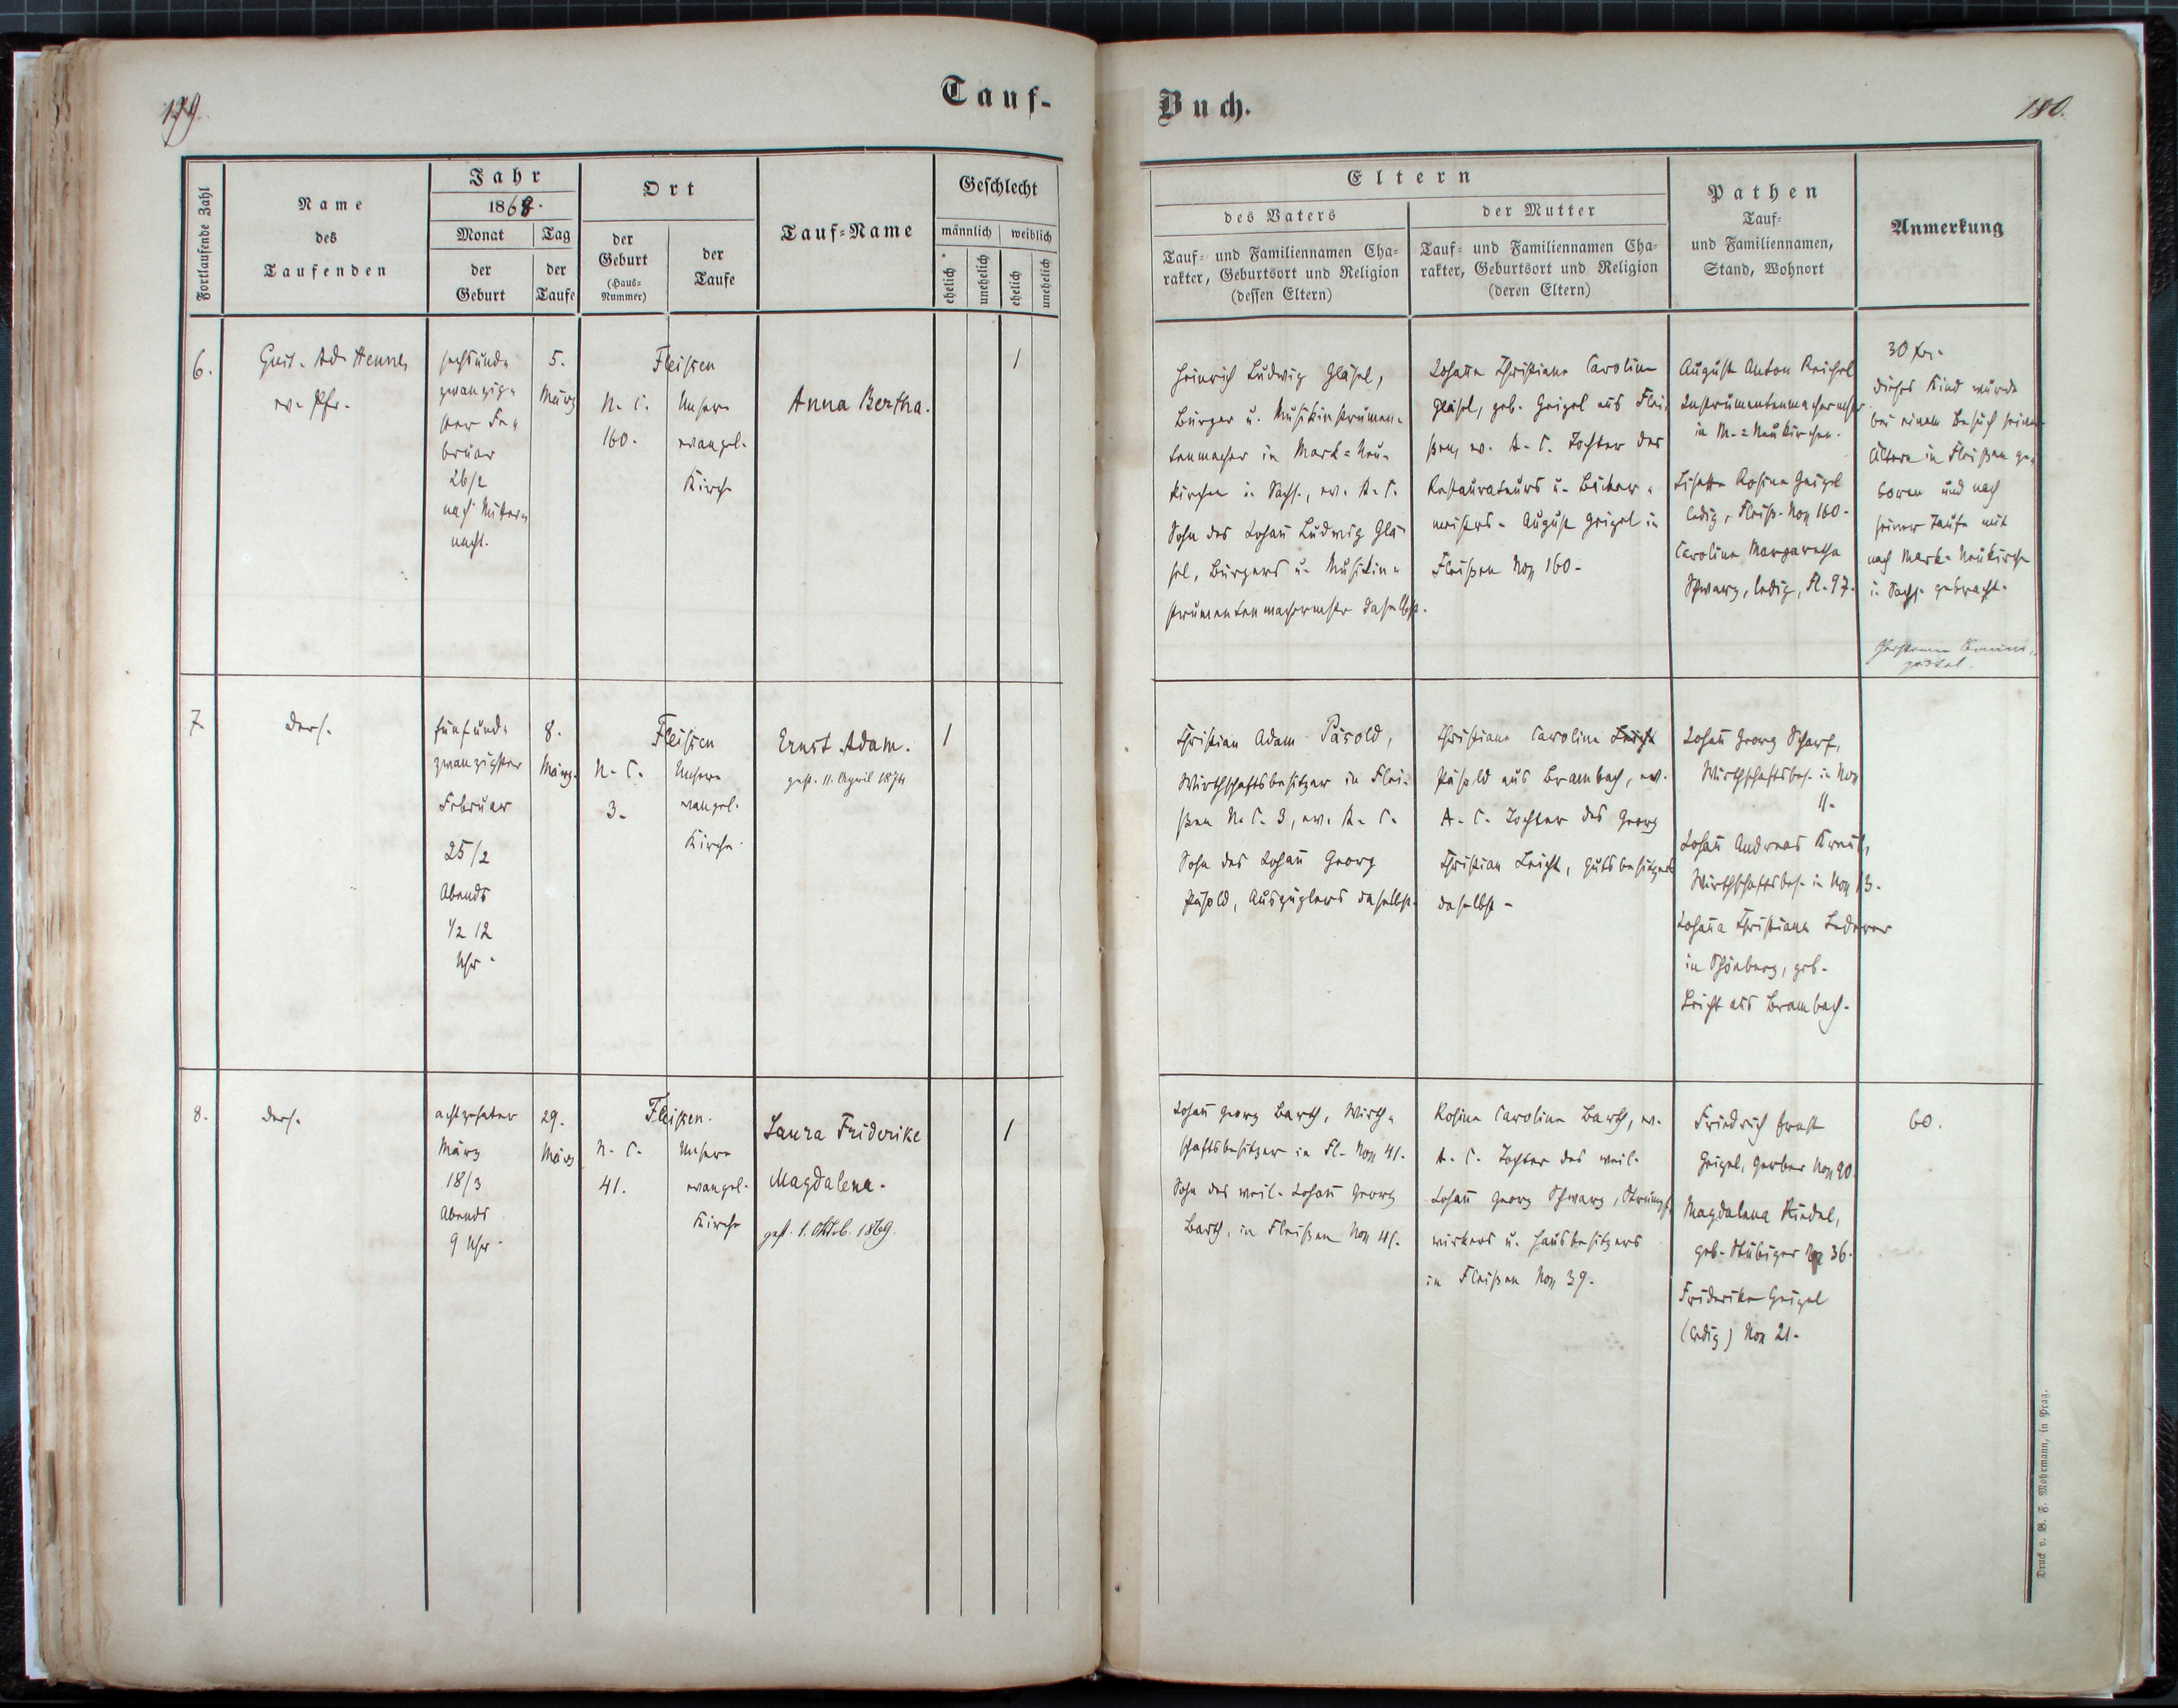 179.
Tauf-
Fortlaufende Zahl
Name
des
Taufenden
Jahr
1868.
Monat
Tag
der
Geburt
der
Taufe
Ort
der
Geburt
(Haus-
Nummer)
der
Taufe
Tauf-Name
Geschlecht
männlich
weiblich
ehelich
unehelich
ehelich
unehelich
6.
Gust. Ad.
ev. Pfr.
sechsund-
zwanzig-
ster Fe-
bruar
26/2
nach Mitter-
nacht.
5.
März
Fleissen
N. C.
160.
Unsere
evangel.
Kirche
Anna Bertha.
1
7.
ders.
fünfund-
zwanzigster
Februar
25/2
Abends
1/2 12
Uhr.
8.
März.
Fleissen
N. C.
3.
Unsere
evangel.
Kirche.
Ernst Adam.
gest. 11. April 1874
1
8.
ders.
achtzehnter
März
18/3
Abends
9 Uhr.
29.
März
Fleissen.
N. C.
41.
Unsere
evangel.
Kirche
Laura Friderike
Magdalena.
gest. 1. Oktob. 1869.
1
Buch.
180.
Eltern
des Vaters
Tauf- und Familiennamen Cha-
rakter, Geburtsort und Religion
(dessen Eltern)
der Mutter
Tauf- und Familiennamen Cha-
rakter, Geburtsort und Religion
(deren Eltern)
Pathen
Tauf-
und Familiennamen,
Stand, Wohnort
Anmerkung
Heinrich Ludwig Gläsel,
Bürger u. Musikinstrumen-
tenmacher in Mark-Neu-
kirchen in Sachs., ev. A. C.
Sohn des Johann Ludwig Glä-
sel, Bürgers u. Musikin-
strumentenmachermstr daselbst.
Johanne Christiane Caroline
Gläsel, geb. Geigel aus Flei-
ßen, ev. A. C. Tochter des
Restaurateurs u. Bäcker-
meisters August Geigel in
Fleißen Nro 160.
August Anton Reichel
Instrumentenmachermstr
in M.-Neukirchen.
Lisette Rosine Geigel
ledig, Fleiß. Nro 160.
Caroline Margaretha
Schwarz, ledig, Fl. 97.
30 kr.
dieses Kind wurde
bei einem Besuch seiner
Ältern in Fleißen ge-
boren und nach
seiner Taufe mit
nach Mark-Neukirchen
in Sachs. gebracht.
Christian Adam Päsold,
Wirthschaftsbesitzer in Flei-
ßen N. C. 3, ev. A. C.
Sohn des Johann Georg
Päsold, Auszüglers daselbst.
Christiane Caroline Leicht
Päsold aus Brambach, ev.
A. C. Tochter des Georg
Christian Leicht, Gutsbesitzers
daselbst.
Johann Georg Scharf,
Wirthschaftsbes. in Nro
11.
Johann Andreas
Wirthschaftsbes. in Nro 13.
Johanna Christiane Lederer
in Schönberg, geb.
Leicht aus Brambach.
Johann Georg Barth, Wirth-
schaftsbesitzer in Fl. Nro 41.
Sohn des weil. Johann Georg
Barth, in Fleißen Nro 41.
Rosine Caroline Barth, ev.
A. C. Tochter des weil.
Johann Georg Schwarz, Strumpf-
wirkers u. Hausbesitzers
in Fleißen Nro 39.
Friedrich Ernst
Geigel, Gerber Nro 90.
Magdalena Riedel,
geb. Stübiger Nro 36.
Friderike Geigel
(ledig) Nro 21.
60.
Druck v. B. F. Mohrmann, in Prag.